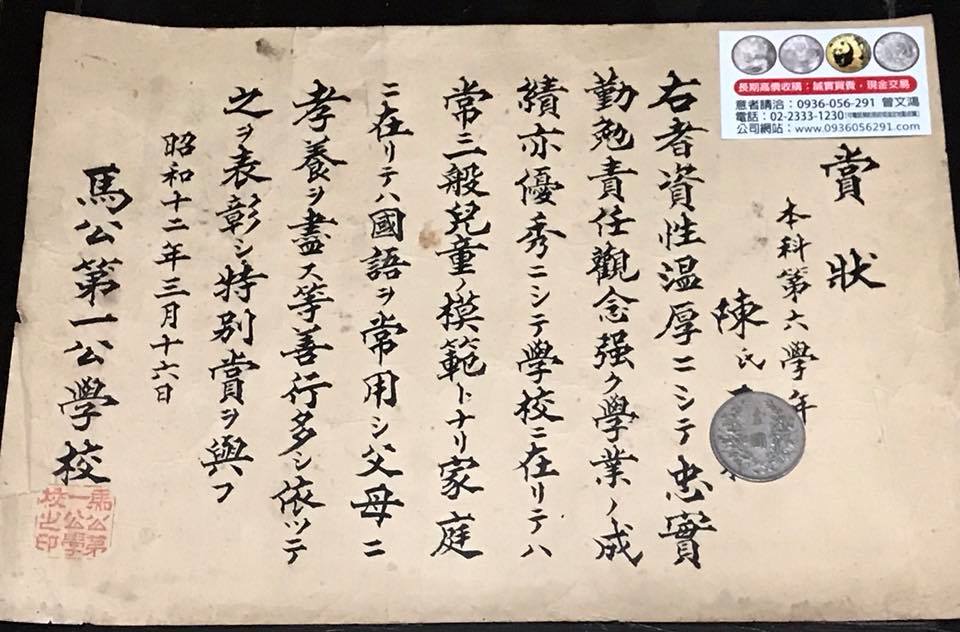 賞狀
本科第六學年
陳氏
右者資性温厚ニシテ忠實
勤勉責任觀念强ク學業ノ成
績亦優秀ニシテ學校ニ在リテハ
常三般兒童ノ模範トナリ家庭
ニ在リテハ國語ヲ常用シ父母ニ
孝養ヲ盡ス等善行多シ依ッテ
之ヲ表彰シ特別賞ヲ與フ
昭和十二年三月十六日
馬公第一公學校
馬公第
一公學
校之印
壹圓
長期高價收購；誠實買賣，現金交易
意者請洽：0936-056-291 曾文鴻
電話：02-2333-1230
公司網站：www.0936056291.com